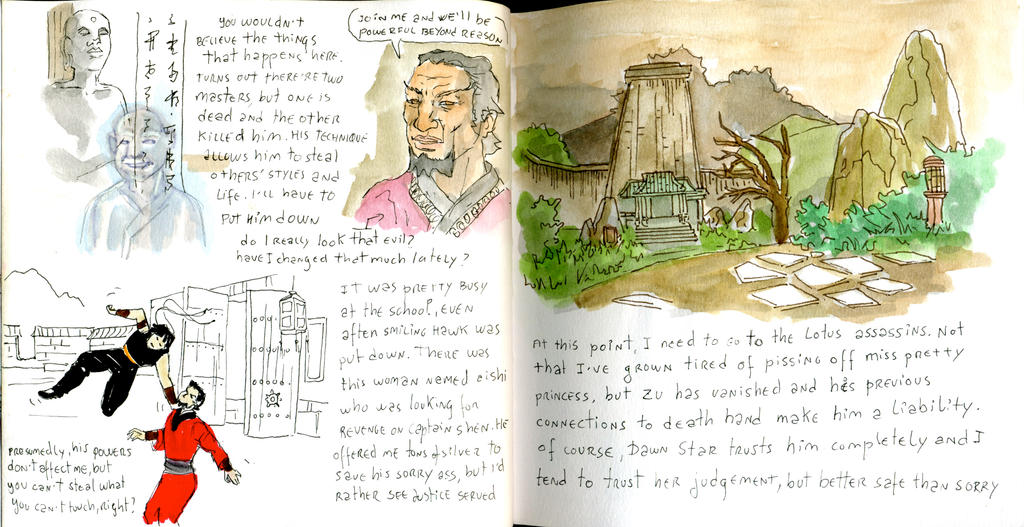 YOU WOULDN't
BELIEVE the things
that happens here.
TURNS OUT there're two
masters, but one is
dead and the other
KILLED him. His technique
allows him to steal
others' styles and
life. I'll have to
put him down
JOIN ME AND WE'LL BE
POWERFUL BEYOND REASON
do I really look that evil?
have I changed that much lately?
It was pretty busy
at the school, even
after smiling Hawk was
put down. There was
this woman named
who was looking for
revenge on captain Shen. He
offered me tons of silver to
save his sorry ass, but I'd
rather see justice served
presumedly, his powers
don't affect me, but
you can't steal what
you can't touch, right?
At this point, I need to go to the Lotus assassins. Not
that I've grown tired of pissing off miss pretty
princess, but Zu has vanished and his previous
connections to death hand make him a liability.
of course, Dawn Star trusts him completely and I
tend to trust her judgement, but better safe than sorry